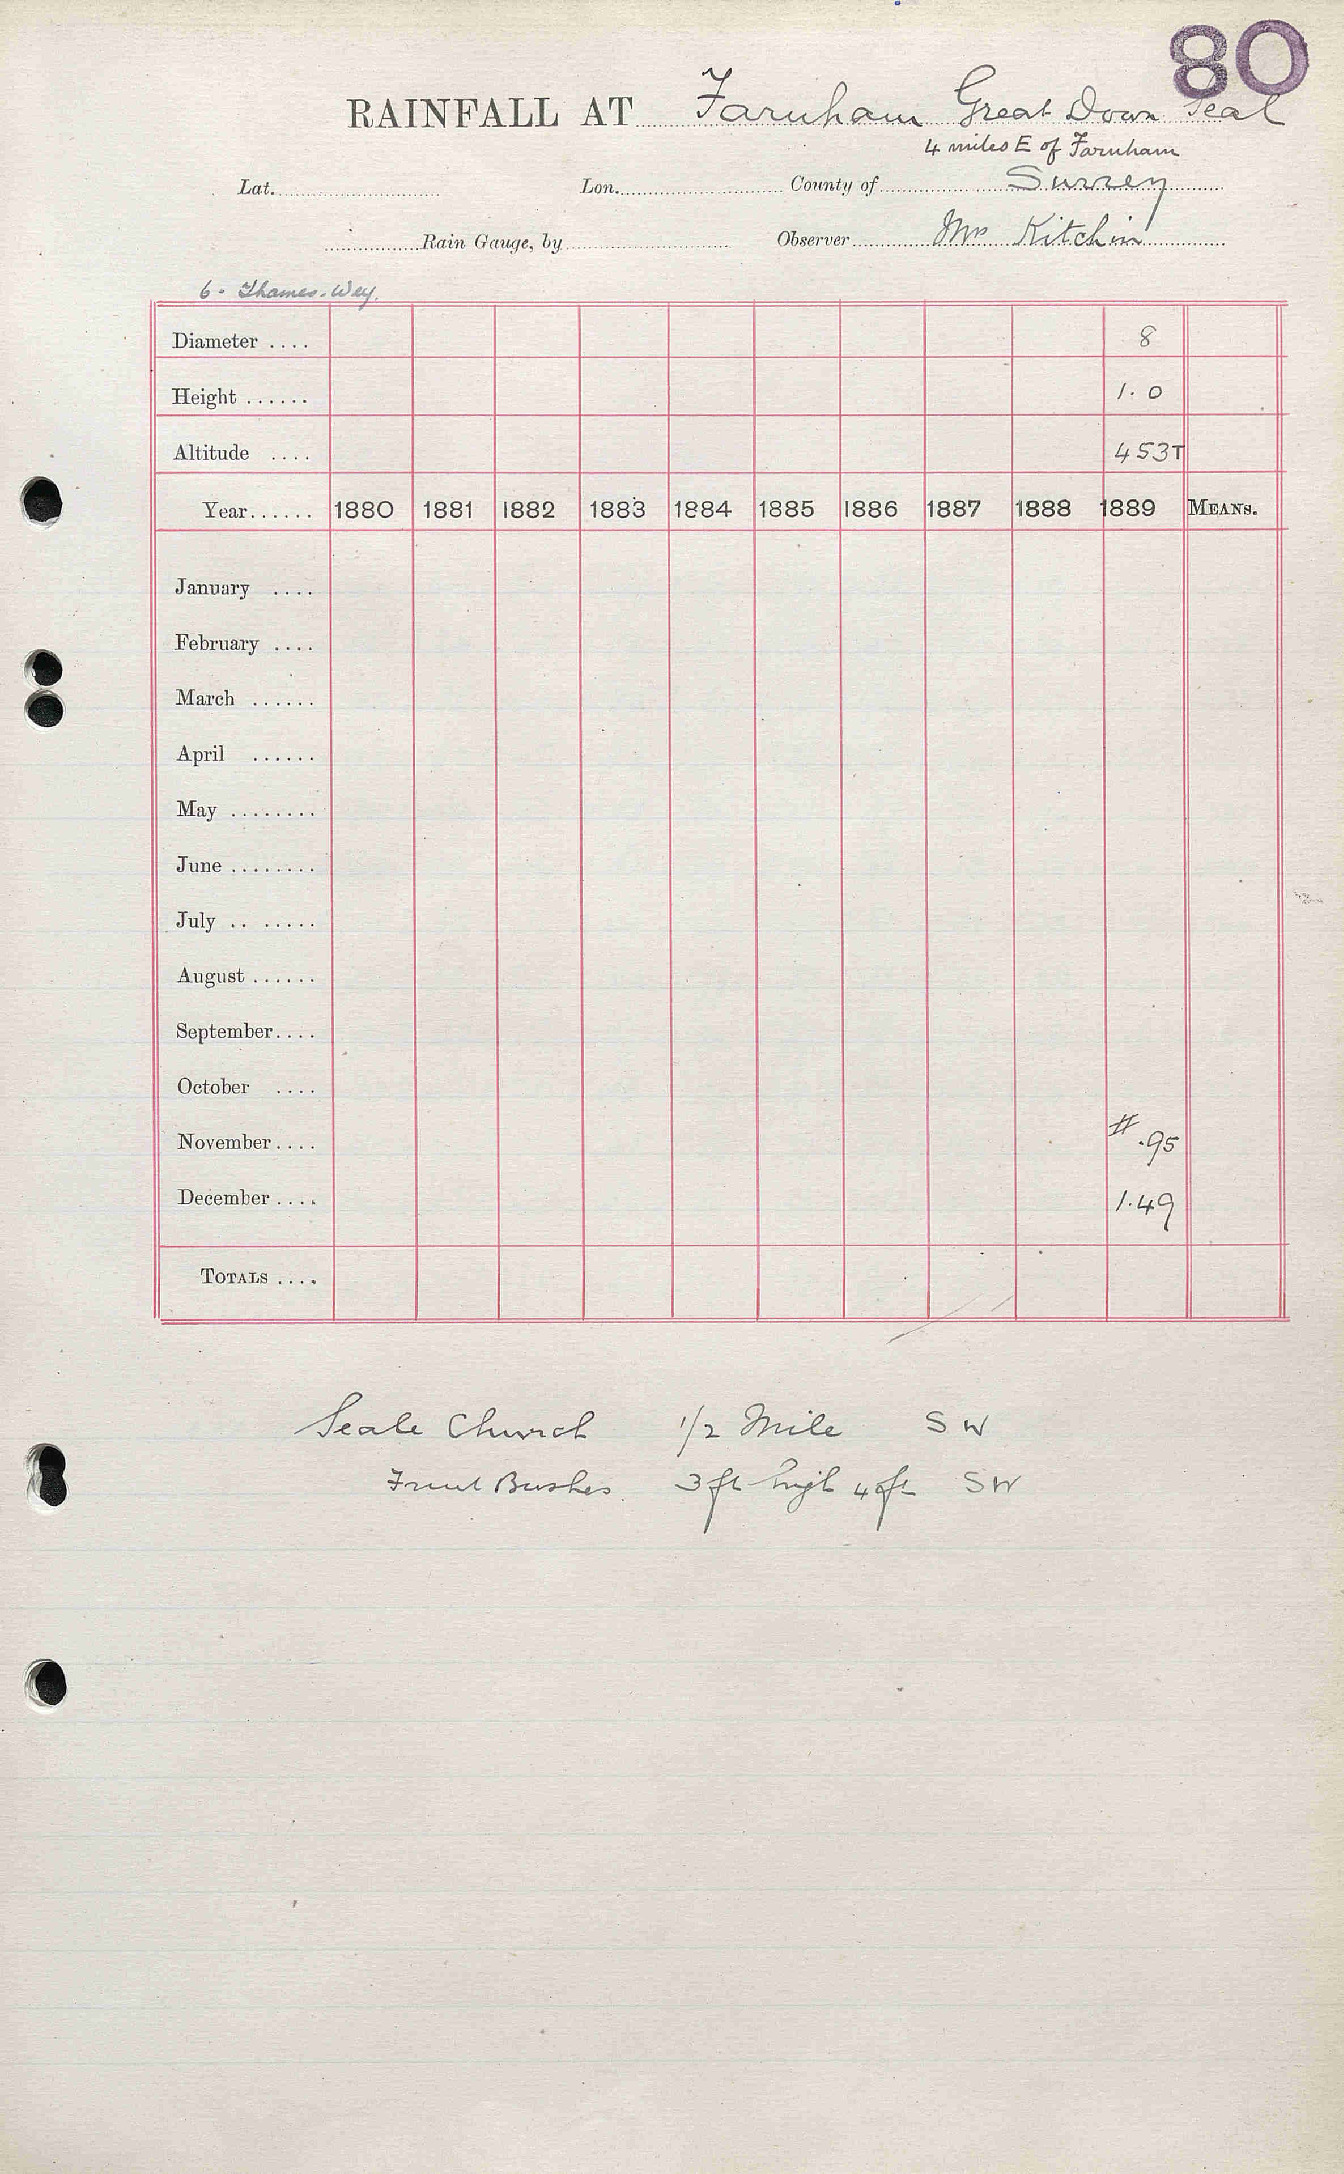 80
RAINFALL AT Farnham Great Down Seal
4 miles E of Farnham
Lat. Lon. County of Surrey
Rain Gauge, by Observer Mrs Kitchin
6. Thames. Wey.
Diameter .... 8
Height ...... 1.0
Altitude .... 453T
Year...... 1880 1881 1882 1883 1884 1885 1886 1887 1888 1889 MEANS.
January ....
February ....
March ......
April ......
May ........
June ........
July .. .....
August ......
September....
October ....
November.... # .95
December.... 1.49
TOTALS ....
Seale Church 1/2 Mile SW
Fruit Bushes 3 ft high 4 ft SW